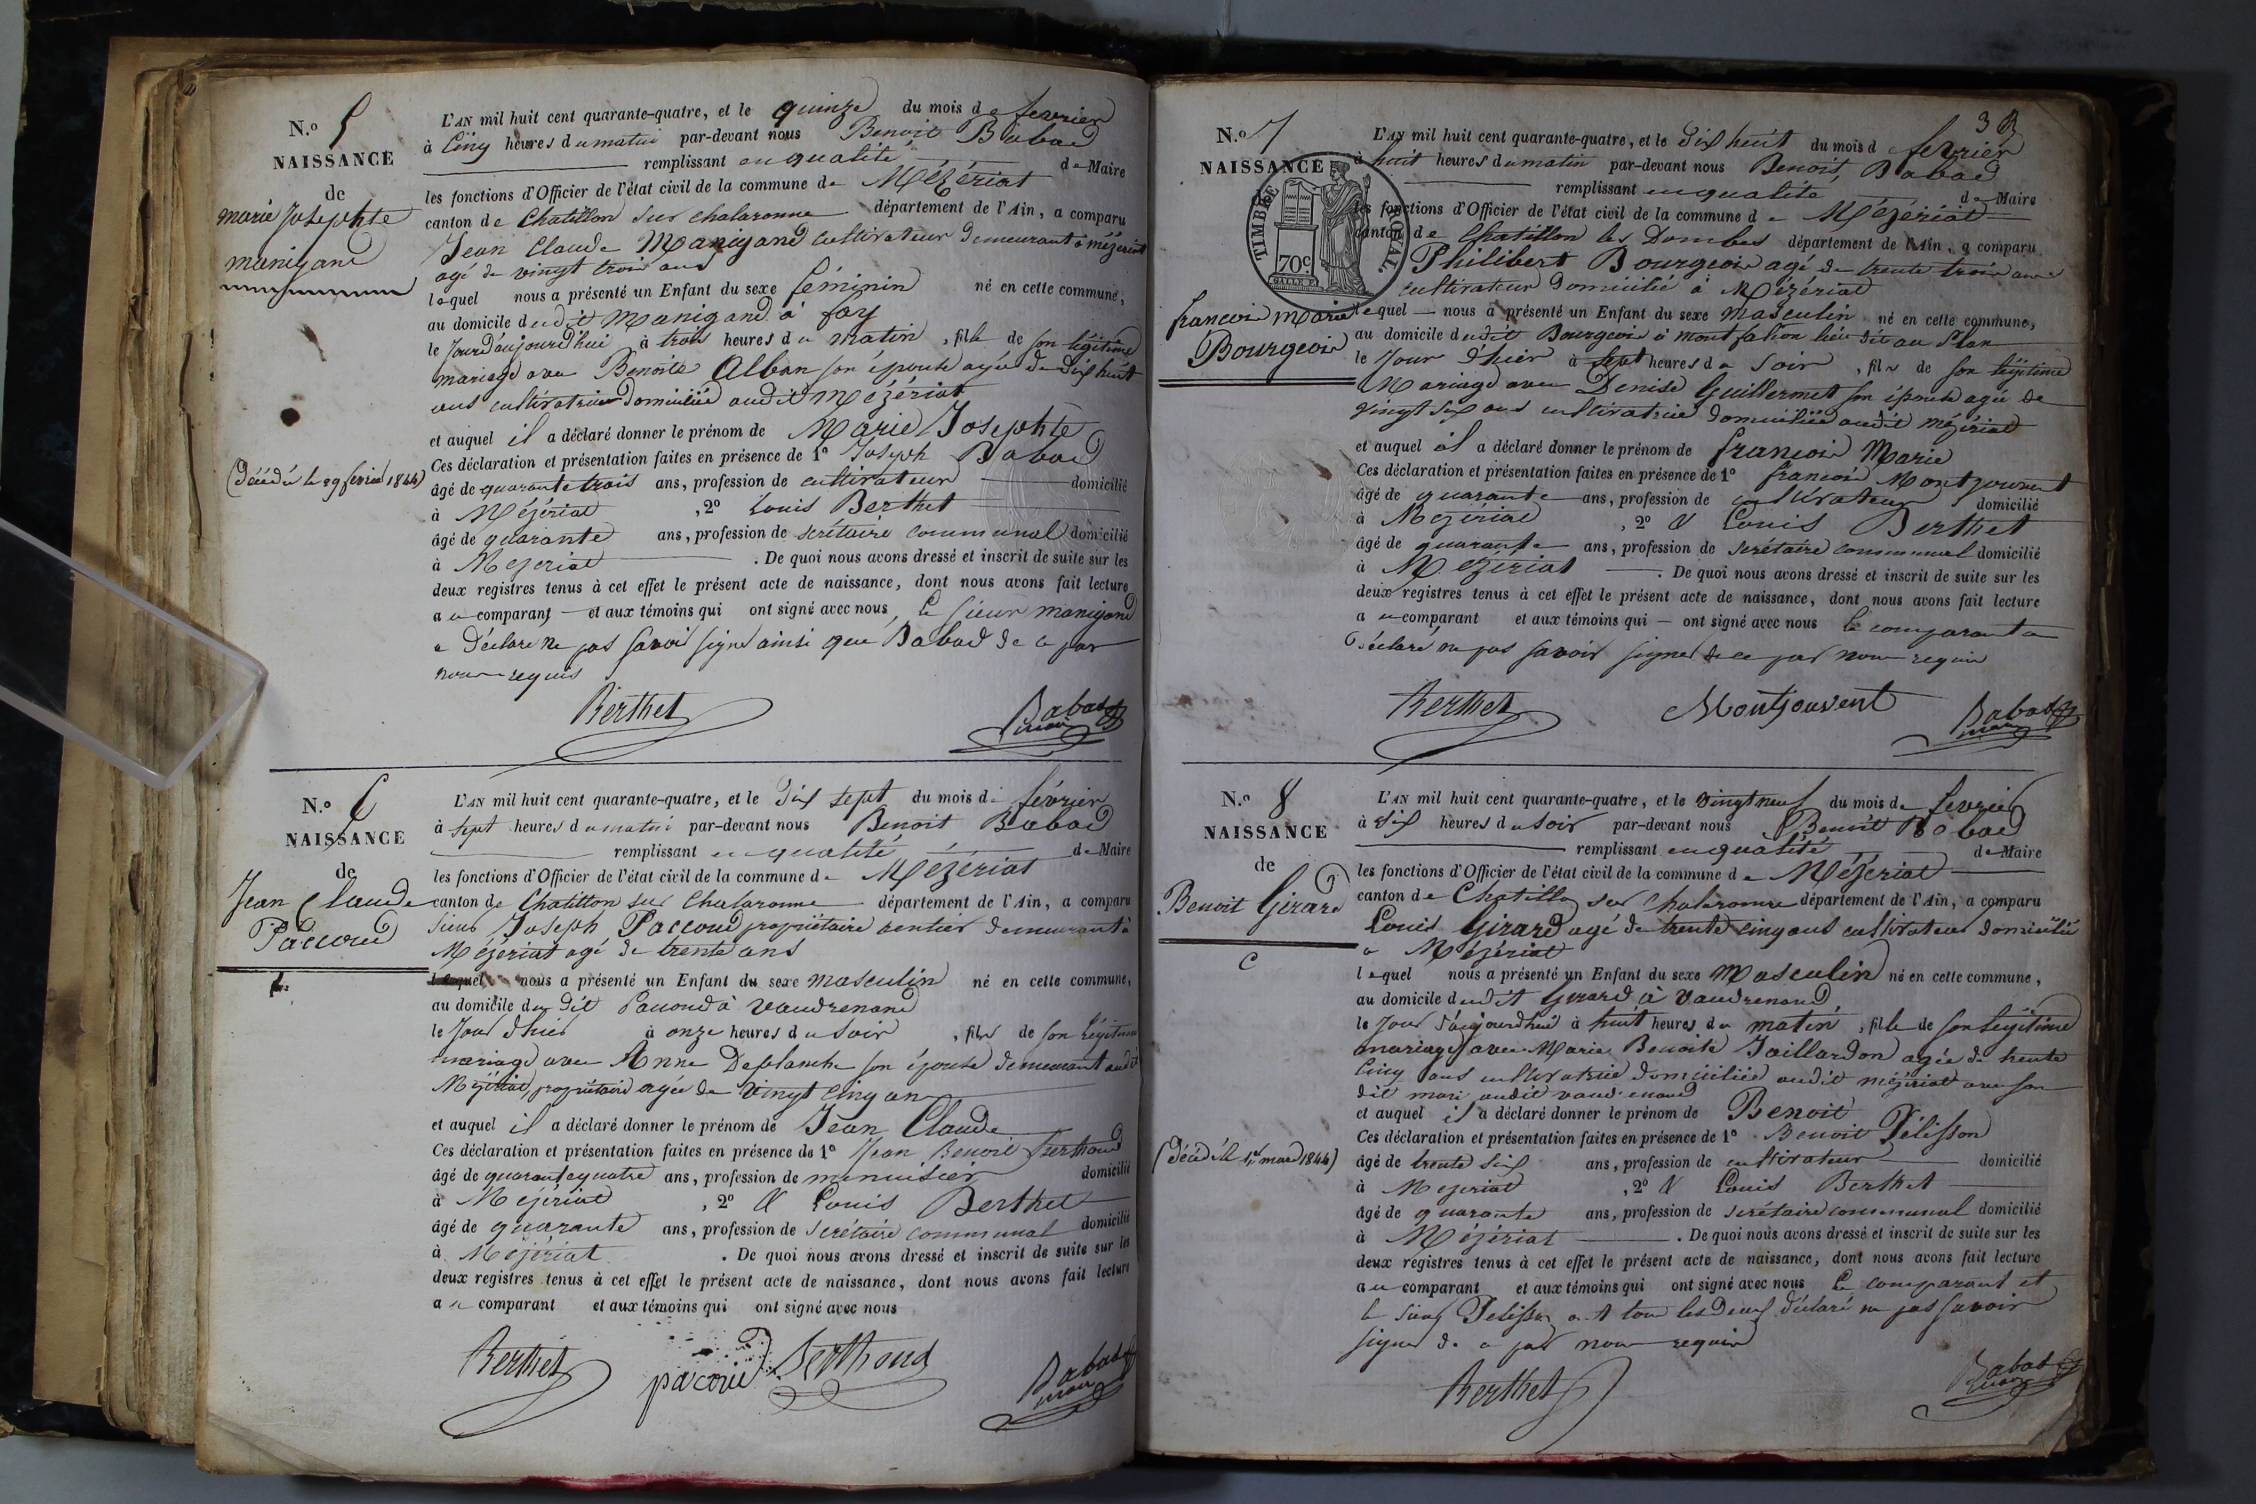 N.º 5
NAISSANCE
de
marie Josephte
manigand
(décédée le 29 février 1844)
L'AN mil huit cent quarante-quatre, et le quinze du mois de fevrier
à Cinq heures du matin par-devant nous Benoit Babad
remplissant en qualité de Maire
les fonctions d'Officier de l'état civil de la commune de Mézériat
canton de Chatillon sur chalaronne département de l'Ain, a comparu
Jean Claude Manigand cultivateur demeurant à mézériat
agé de vingt trois ans
lequel nous a présenté un Enfant du sexe féminin né en cette commune,
au domicile dudit Manigand à fay
le Jourd'aujourd'hui à trois heures du matin, fille de son légitime
mariage avec Benoite Alban son épouse agée de dix huit
ans cultivatrice domiciliée audit Mézériat
et auquel il a déclaré donner le prénom de Marie Josephte
Ces déclaration et présentation faites en présence de 1º Joseph Babad
âgé de quarante trois ans, profession de cultivateur domicilié
à Mézériat, 2º Louis Berthet
âgé de quarante ans, profession de secrétaire communal domicilié
à Mezeriat. De quoi nous avons dressé et inscrit de suite sur les
deux registres tenus à cet effet le présent acte de naissance, dont nous avons fait lecture
au comparant et aux témoins qui ont signé avec nous, le sieur manigand
a déclaré ne pas savoir signer ainsi que Babad de ce par
nous requis
Berthet Babad
maire
N.º 6
NAISSANCE
de
Jean Claude
Paccoud
L'AN mil huit cent quarante-quatre, et le dix sept du mois de février
à sept heures du matin par-devant nous Benoit Babad
remplissant en qualité de Maire
les fonctions d'Officier de l'état civil de la commune de Mézériat
canton de Chatillon sur Chalaronne département de l'Ain, a comparu
sieur Joseph Paccoud propriétaire rentier demeurant à
Mézériat agé de trente ans
lequel nous a présenté un Enfant du sexe masculin né en cette commune,
au domicile dudit Paccoud à Vaudrenand
le Jour d'hier à onze heures du soir, fils de son légitime
mariage avec Anne Desplanche son épouse demeurant audit
Mézériat, propriétaire agée de vingt cinq ans
et auquel il a déclaré donner le prénom de Jean Claude
Ces déclaration et présentation faites en présence de 1º Jean Benoit Berthoud
âgé de quarante quatre ans, profession de menuisier domicilié
à Mézériat, 2º & Louis Berthet
âgé de quarante ans, profession de secrétaire communal domicilié
à Mézériat. De quoi nous avons dressé et inscrit de suite sur les
deux registres tenus à cet effet le présent acte de naissance, dont nous avons fait lecture
au comparant et aux témoins qui ont signé avec nous
Berthet pacoud Berthoud Babad
maire
3
N.º 7
NAISSANCE
TIMBRE ROYAL
70c
francois marie
Bourgeois
L'AN mil huit cent quarante-quatre, et le dix huit du mois de fevrier
à huit heures du matin par-devant nous Benoit Babad
remplissant en qualité de Maire
les fonctions d'Officier de l'état civil de la commune de Mézériat
canton de Chatillon les Dombes département de l'Ain, a comparu
Philibert Bourgeois agé de trente trois ans
cultivateur domicilié à Mézériat
lequel nous a présenté un Enfant du sexe masculin né en cette commune,
au domicile dudit Bourgeois à montfalion lieu dit au Plan
le Jour d'hier à sept heures du soir, fils de son légitime
Mariage avec Denise Guillermet son épouse agée de
vingt six ans cultivatrice domiciliée audit mézériat
et auquel il a déclaré donner le prénom de francois Marie
Ces déclaration et présentation faites en présence de 1º francois Montjouvent
âgé de quarante ans, profession de cultivateur domicilié
à Mezériat, 2º & Louis Berthet
âgé de quarante ans, profession de secrétaire communal domicilié
à Mézériat. De quoi nous avons dressé et inscrit de suite sur les
deux registres tenus à cet effet le présent acte de naissance, dont nous avons fait lecture
au comparant et aux témoins qui ont signé avec nous le comparant a
déclaré ne pas savoir signer de ce par nous requis
Berthet Montjouvent Babad
maire
N.º 8
NAISSANCE
de
Benoit Girard
C
(décédé le 1er mars 1844)
L'AN mil huit cent quarante-quatre, et le vingt neuf du mois de fevrier
à six heures du soir par-devant nous Benoit Babad
remplissant en qualité de Maire
les fonctions d'Officier de l'état civil de la commune de Mézériat
canton de Chatillon sur chalaronne département de l'Ain, a comparu
Louis Girard agé de trente cinq ans cultivateur domicilié
a Mézériat
lequel nous a présenté un Enfant du sexe Masculin né en cette commune,
au domicile dudit Girard à Vaudrenand
le Jour d'aujourd'hui à huit heures du matin, fils de son légitime
mariage avec Marie Benoite Taillardon agée de trente
cinq ans cultivatrice domiciliée audit mézériat avec son
dit mari audit vaudrenand
et auquel il a déclaré donner le prénom de Benoit
Ces déclaration et présentation faites en présence de 1º Benoit Pélisson
âgé de trente six ans, profession de cultivateur domicilié
à Mezeriat, 2º & Louis Berthet
âgé de quarante ans, profession de secrétaire communal domicilié
à Mézériat. De quoi nous avons dressé et inscrit de suite sur les
deux registres tenus à cet effet le présent acte de naissance, dont nous avons fait lecture
au comparant et aux témoins qui ont signé avec nous le comparant et
le sieur Pelisson ont tous les deux déclaré ne pas savoir
signer de ce par nous requis
Berthet Babad
maire